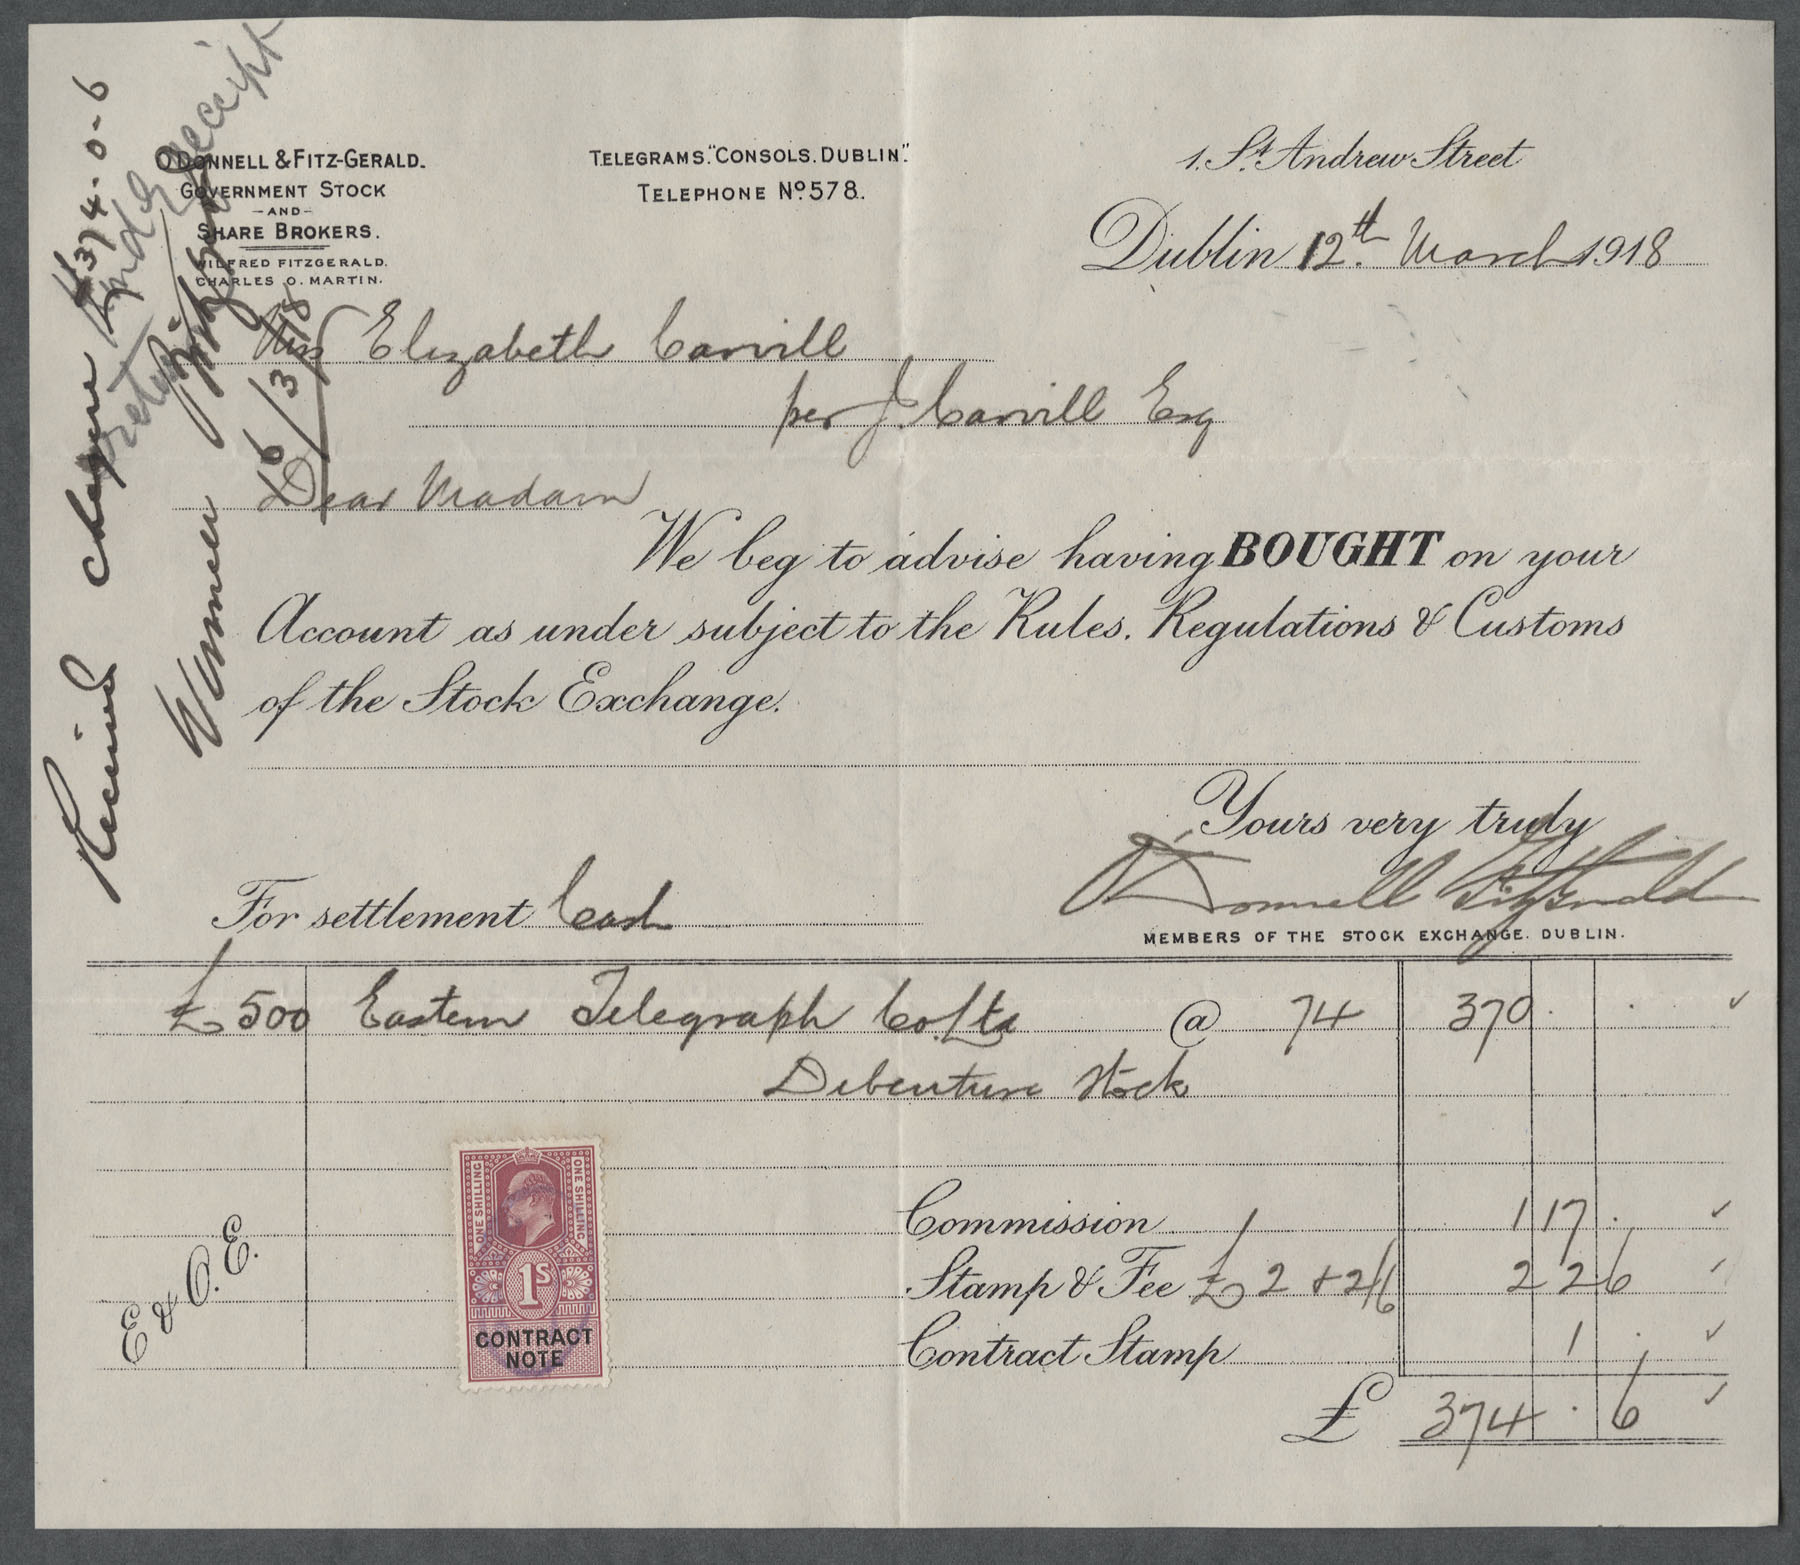 O'DONNELL & FITZ-GERALD.
GOVERNMENT STOCK
-AND-
SHARE BROKERS.
WILFRED FITZGERALD.
CHARLES O. MARTIN.
TELEGRAMS. "CONSOLS. DUBLIN".
TELEPHONE No. 578.
1. St. Andrew Street
Dublin 12th. March 1918
Miss Elizabeth Carvill
per J. Carvill Esq
Dear Madam
We beg to advise having BOUGHT on your
Account as under subject to the Rules. Regulations & Customs
of the Stock Exchange.
Yours very truly
O'Donnell Fitzgerald
MEMBERS OF THE STOCK EXCHANGE. DUBLIN.
For settlement Cash
£500 Eastern Telegraph Co. Ltd @ 74 370 . .
Debenture Stock
Commission 1 17 .
Stamp & Fee £2 + 2/6 2 2 6
Contract Stamp 1 .
£ 374 . 6
E & O. E.
ONE SHILLING
ONE SHILLING
1S
CONTRACT
NOTE
Received cheque £374-0-6
receipt
16/3/18